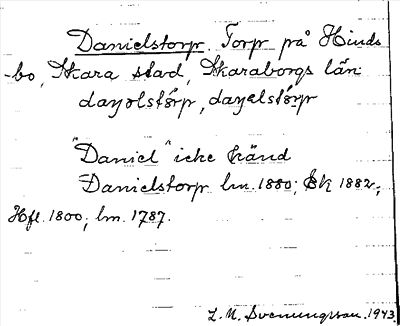 Danielstorp. Torp på Hinds
-bo, Skara stad, Skaraborgs län
dayolstörp, dayelstörp
"Daniel" icke känd
Danielstorp lm. 1880; EK 1882;
Hfl. 1800; lm. 1787.
L. M. Svenungsson. 1943.